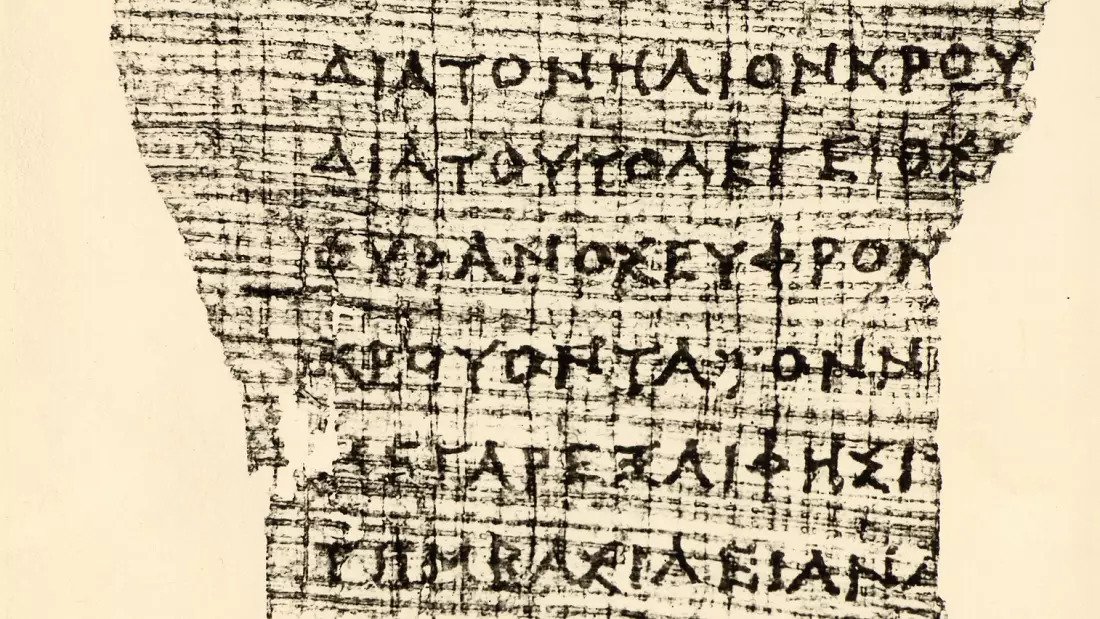 ΔΙΑΤΟΝΗΛΙΟΝΚΡΟΥ
ΔΙΑΤΟΥΤΟΛΕΓΕΙΟΣ
ΟΥΡΑΝΟΣΕΥΦΡΟΝ
ΚΡΟΥΟΝΤΑΤΟΝΝ
ΜΕΓΑΡΕΞΑΙΦΗΣΙΤ
ΤΗΜΒΑΣΙΛΕΙΑΝΑ